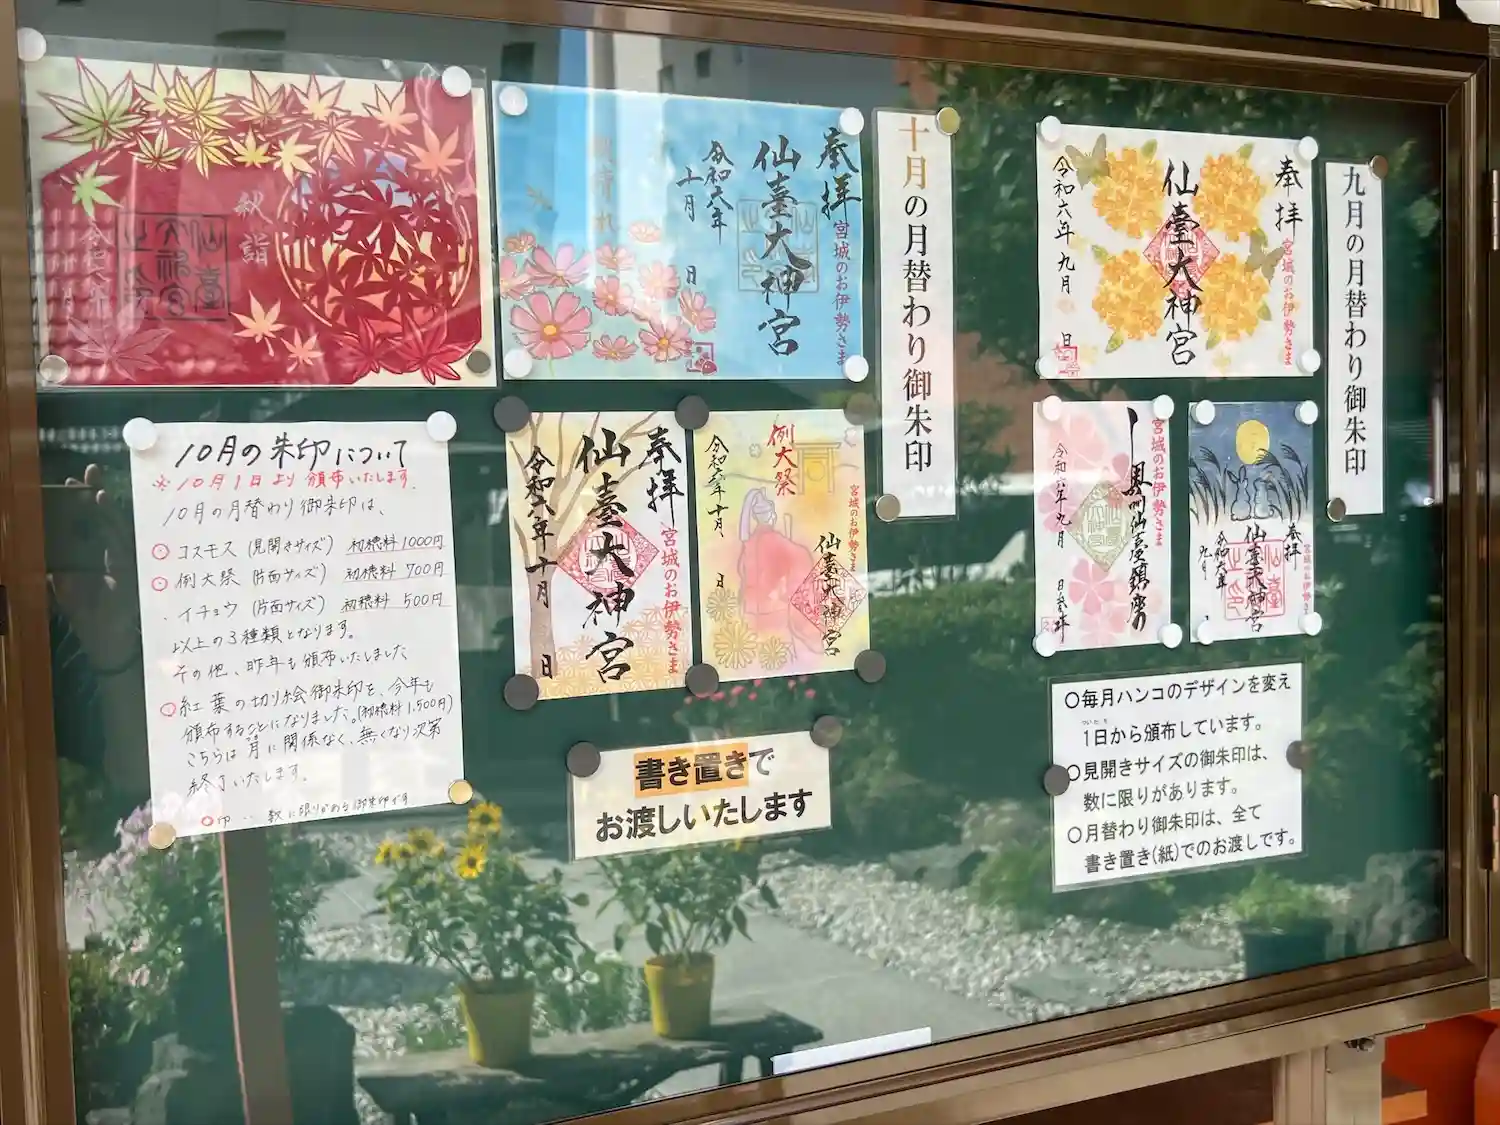 秋詣
仙臺
大神宮
之印
奉拝
宮城のお伊勢さま
仙臺大神宮
令和六年
十月
日
十月の月替わり御朱印
奉拝
宮城のお伊勢さま
仙臺大神宮
令和六年 九月 日
九月の月替わり御朱印
10月の朱印について
※10月1日より頒布いたします.
10月の月替わり御朱印は、
○コスモス(見開きサイズ) 初穂料1000円
○例大祭(片面サイズ) 初穂料 700円
・イチョウ(片面サイズ) 初穂料 500円
以上の3種類となります。
その他、昨年も頒布いたしました
○紅葉の切り絵御朱印を、今年も
頒布することになりました。(初穂料1,500円)
こちらは月に関係なく、無くなり次第
終了いたします。
○印‥数に限りがある御朱印です
奉拝
宮城のお伊勢さま
仙臺大神宮
令和六年十月 日
例大祭
宮城のお伊勢さま
仙臺大神宮
令和六年十月 日
宮城のお伊勢さま
奥州仙臺鎮座
令和六年九月 日参拝
奉拝
宮城のお伊勢さま
仙臺大神宮
令和六年
九月
書き置きで
お渡しいたします
○毎月ハンコのデザインを変え
ついたち
1日から頒布しています。
○見開きサイズの御朱印は、
数に限りがあります。
○月替わり御朱印は、全て
書き置き(紙)でのお渡しです。